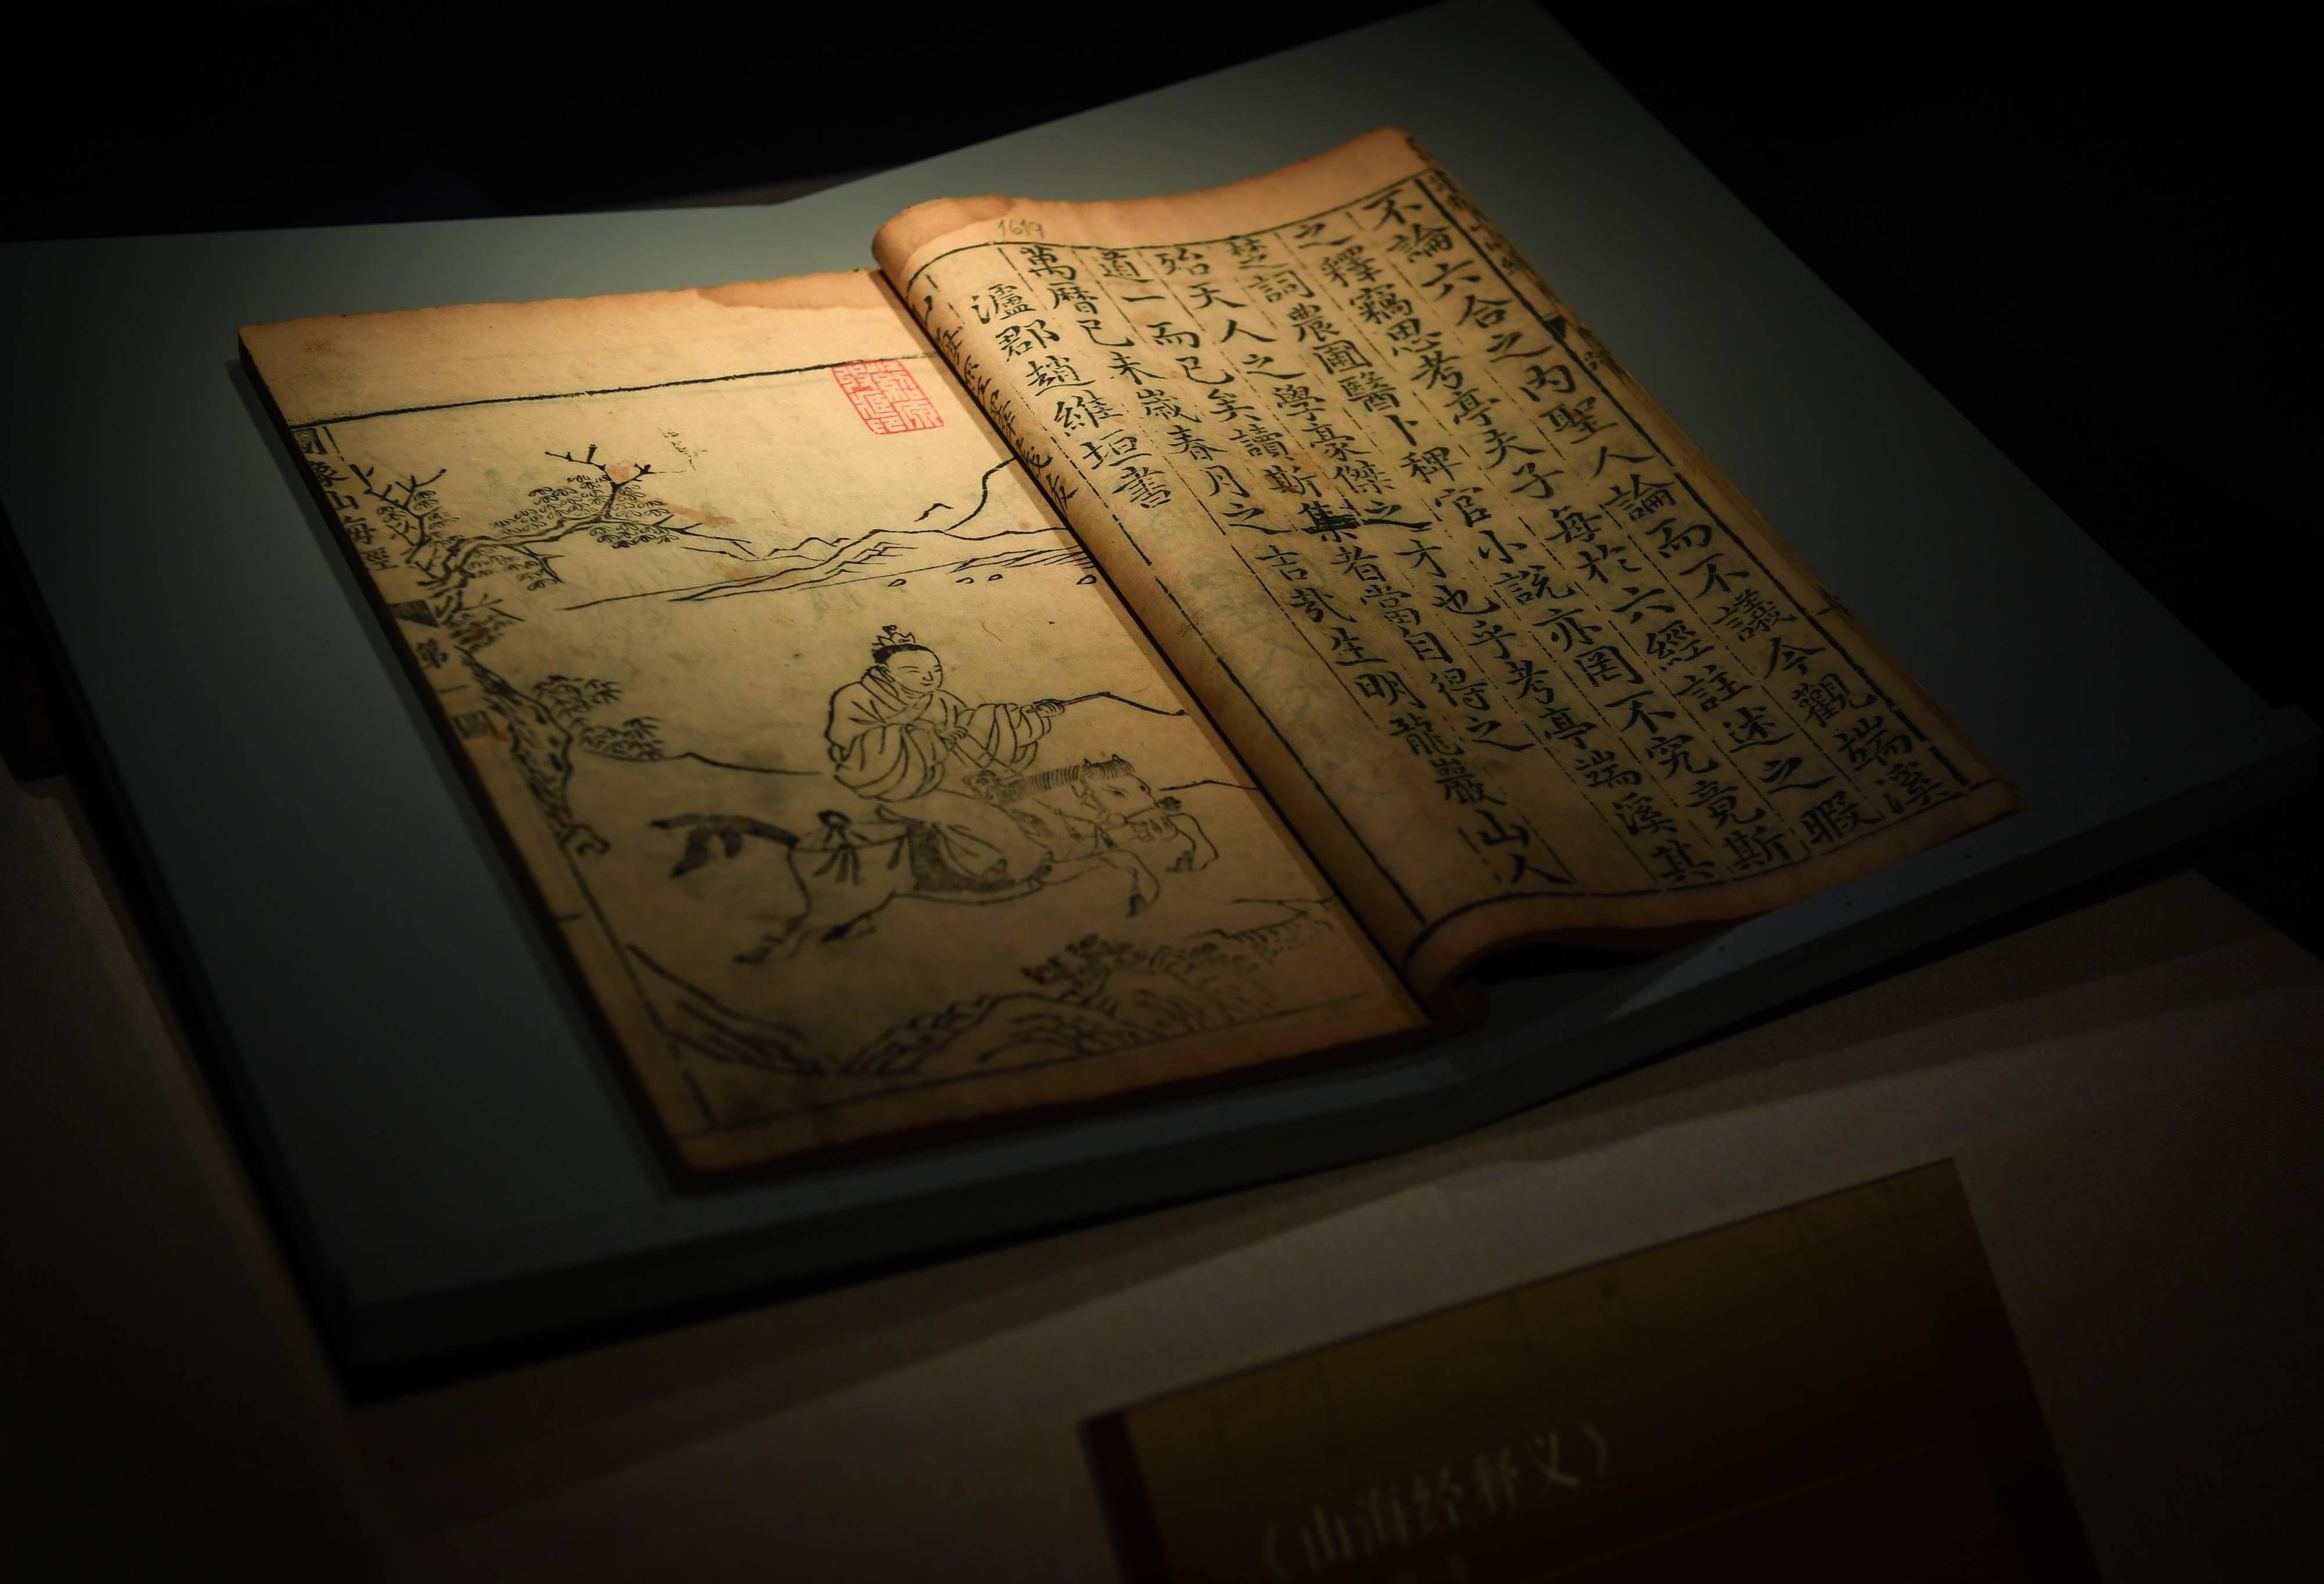 1619
不論六合之內聖人論而不議今觀端溪
之釋竊思考亭夫子每於六經註述之暇
楚詞農圃醫卜稗官小說亦罔不究竟斯
殆天人之學豪傑之才也乎考亭端溪其
道一而已矣讀斯集者當自得之
萬曆已未歲春月之吉哉生明龍巖山人
瀘郡趙維垣書
圖像山海經
第一圖
《山海经释义》